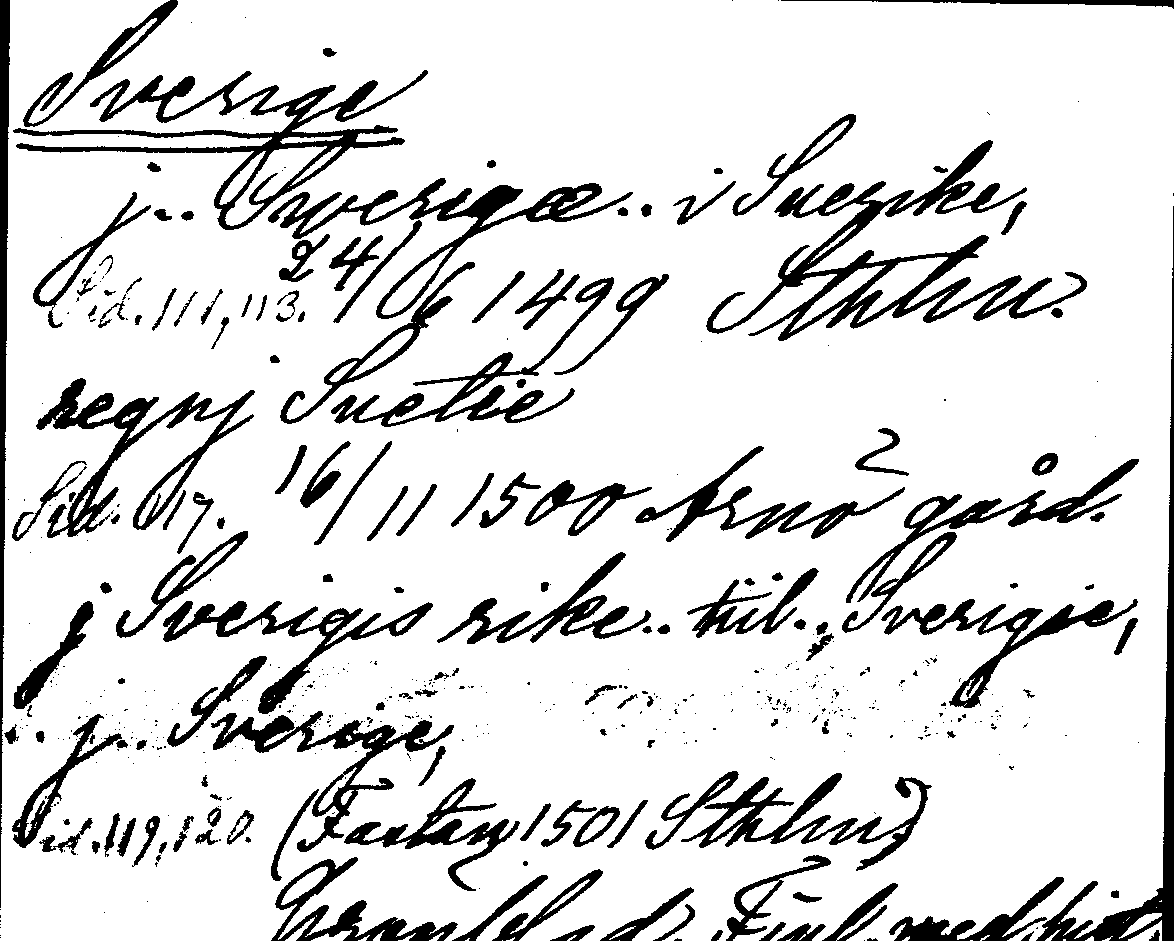 Sverige
j.. Swerigæ.. i Suerike,
Sid. 111, 113. 24/6 1499 Sthlm.
regnj Suetie
Sid. 117. 16/11 1500 Arnö gård.
j Sverigis rike.. tiil.. Sverigie,
.. j.. Sverige,
Sid. 119, 120. (Fastan 1501 Sthlm)
Finl. med hist